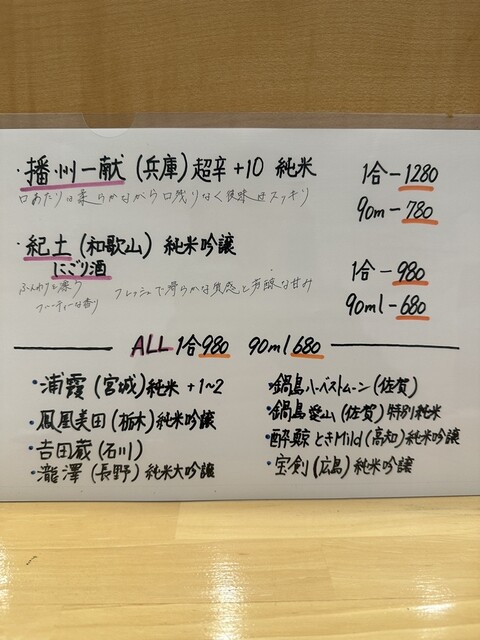 ・播州一献 (兵庫) 超辛 +10 純米 1合 - 1280
口あたりは柔らかながら口残りなく後味はスッキリ 90m - 780
・紀土 (和歌山) 純米吟醸
にごり酒 1合 - 980
ふんわりと漂う フレッシュで滑らかな質感と芳醇な甘み
フルーティーな香り 90ml - 680
ALL 1合 980 90ml 680
・浦霞 (宮城) 純米 +1~2
・鳳凰美田 (栃木) 純米吟醸
・吉田蔵 (石川)
・瀧澤 (長野) 純米大吟醸
・鍋島ハーベストムーン (佐賀)
・鍋島 愛山 (佐賀) 特別純米
・酔鯨 ときMild (高知) 純米吟醸
・宝剣 (広島) 純米吟醸